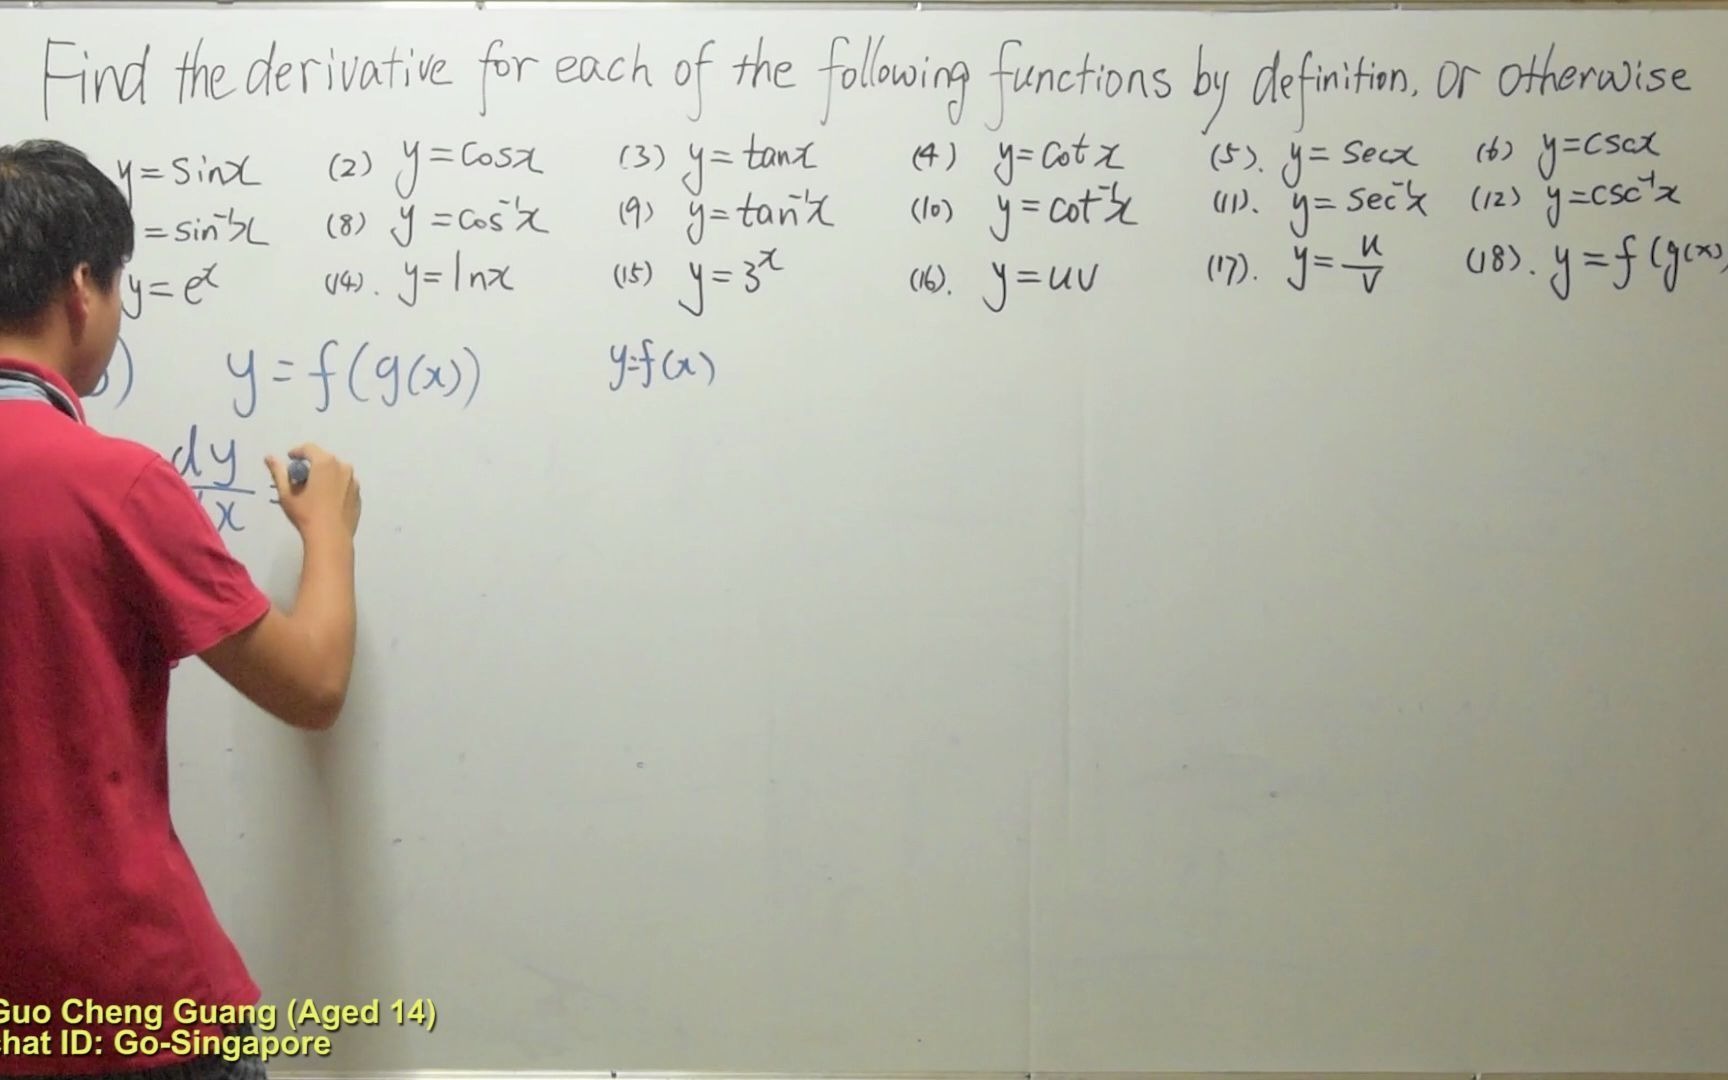 Find the derivative for each of the following functions by definition, or otherwise
y = sinx (2) y = cosx (3) y = tanx (4) y = cotx (5). y = secx (6) y = cscx
= sin⁻¹x (8) y = cos⁻¹x (9) y = tan⁻¹x (10) y = cot⁻¹x (11). y = sec⁻¹x (12) y = csc⁻¹x
y = eˣ (14). y = lnx (15) y = 3ˣ (16). y = uv (17). y = u/v (18). y = f(g(x)
) y = f(g(x)) y=f(x)
dy/x =
Guo Cheng Guang (Aged 14)
chat ID: Go-Singapore